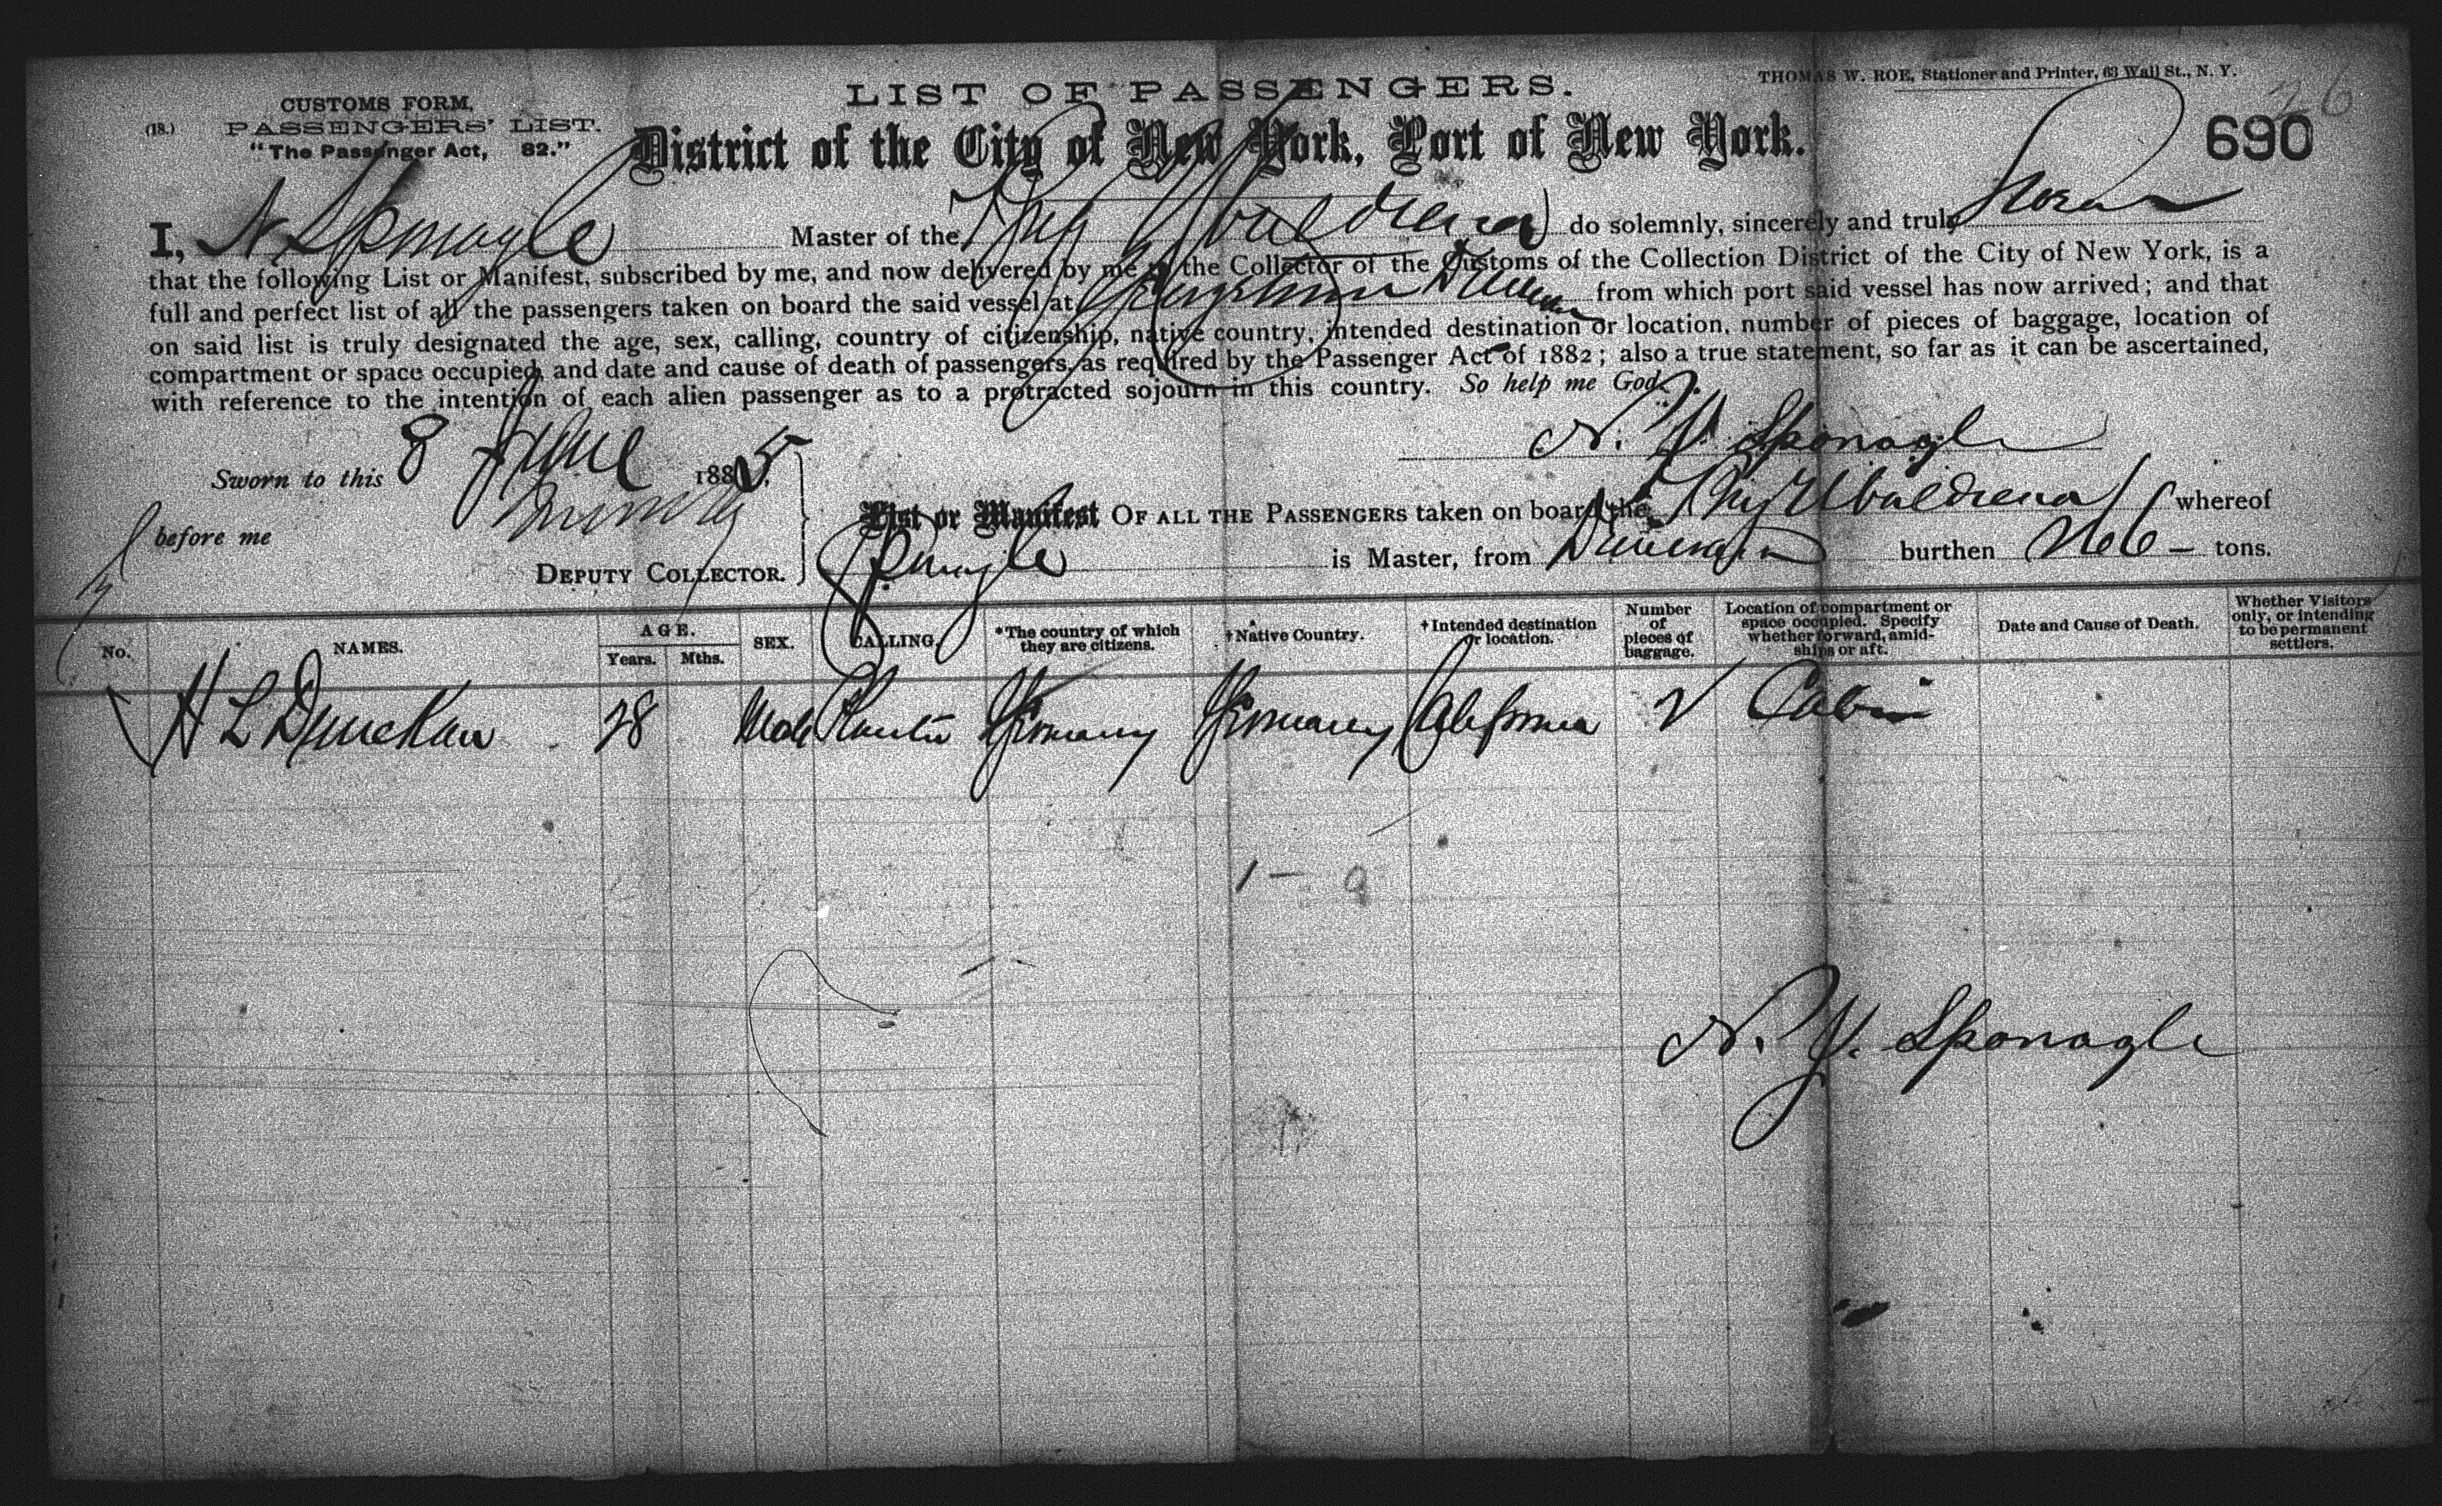 LIST OF PASSENGERS.
THOMAS W. ROE, Stationer and Printer, 63 Wall St., N. Y.
CUSTOMS FORM,
(18.) PASSENGERS' LIST.
"The Passenger Act, 82."
26
District of the City of New York, Port of New York.
690
I, N. Sponagle Master of the do solemnly, sincerely and truly Swear
that the following List or Manifest, subscribed by me, and now delivered by me to the Collector of the Customs of the Collection District of the City of New York, is a
full and perfect list of all the passengers taken on board the said vessel at from which port said vessel has now arrived; and that
on said list is truly designated the age, sex, calling, country of citizenship, native country, intended destination or location, number of pieces of baggage, location of
compartment or space occupied, and date and cause of death of passengers, as required by the Passenger Act of 1882; also a true statement, so far as it can be ascertained,
with reference to the intention of each alien passenger as to a protracted sojourn in this country. So help me God.
N. Y. Sponagle
Sworn to this 8 June 1885,
List or Manifest OF ALL THE PASSENGERS taken on board the whereof
before me
Sponagle is Master, from Demerara burthen tons.
DEPUTY COLLECTOR.
No. NAMES. AGE. Years. Mths. SEX. CALLING. *The country of which they are citizens. †Native Country. †Intended destination or location. Number of pieces of baggage. Location of compartment or space occupied. Specify whether forward, amidships or aft. Date and Cause of Death. Whether Visitors only, or intending to be permanent settlers.
H L 28 Male Planter Germany Germany California Cabin
1 -
N. Y. Sponagle